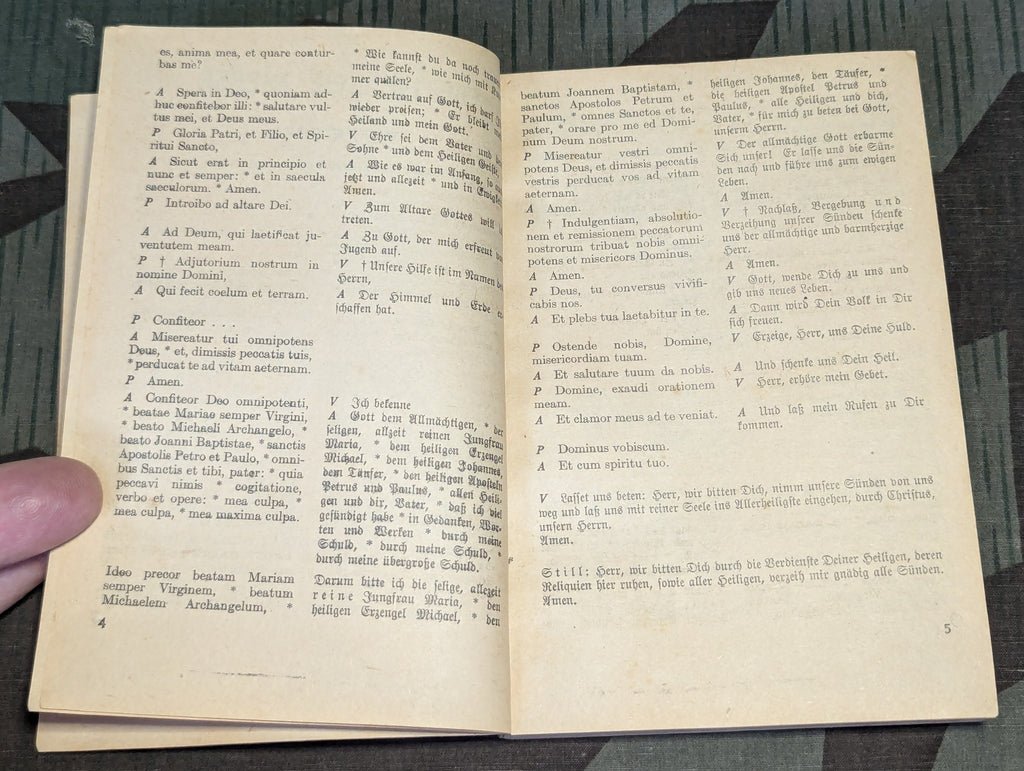 es, anima mea, et quare contur-
bas me?
A Spera in Deo, * quoniam ad-
huc confitebor illi: * salutare vul-
tus mei, et Deus meus.
P Gloria Patri, et Filio, et Spi-
ritui Sancto,
A Sicut erat in principio et
nunc et semper: * et in saecula
saeculorum. * Amen.
P Introibo ad altare Dei.
A Ad Deum, qui laetificat ju-
ventutem meam.
P † Adjutorium nostrum in
nomine Domini,
A Qui fecit coelum et terram.
P Confiteor . . .
A Misereatur tui omnipotens
Deus, * et, dimissis peccatis tuis,
* perducat te ad vitam aeternam.
P Amen.
A Confiteor Deo omnipotenti,
* beatae Mariae semper Virgini,
* beato Michaeli Archangelo, *
beato Joanni Baptistae, * sanctis
Apostolis Petro et Paulo, * omni-
bus Sanctis et tibi, pater: * quia
peccavi nimis * cogitatione,
verbo et opere: * mea culpa, *
mea culpa, * mea maxima culpa.
Ideo precor beatam Mariam
semper Virginem, * beatum
Michaelem Archangelum, *
4
* Wie kannst du da noch
meine Seele, * wie mich mit
mer quälen?
A Vertrau auf Gott, ich darf
wieder preisen; * Er bleibt
Heiland und mein Gott.
V Ehre sei dem Vater und
Sohne * und dem Heiligen Geiste,
A Wie es war im Anfang, so
jetzt und allezeit * und in Ewigkeit
Amen.
V Zum Altare Gottes will
treten.
A Zu Gott, der mich erfreut
Jugend auf.
V † Unsere Hilfe ist im Namen
Herrn,
A Der Himmel und Erde
schaffen hat.
V Ich bekenne
A Gott dem Allmächtigen, * der
seligen, allzeit reinen Jungfrau
Maria, * dem heiligen Erzengel
Michael, * dem heiligen Johannes,
dem Täufer, * den heiligen Aposteln
Petrus und Paulus, * allen Heili-
gen und dir, Vater, * daß ich viel
gesündigt habe * in Gedanken, Wor-
ten und Werken * durch meine
Schuld, * durch meine Schuld, *
durch meine übergroße Schuld.
Darum bitte ich die selige, allezeit
reine Jungfrau Maria, * den
heiligen Erzengel Michael, * den
beatum Joannem Baptistam, *
sanctos Apostolos Petrum et
Paulum, * omnes Sanctos et te,
pater, * orare pro me ad Domi-
num Deum nostrum.
P Misereatur vestri omni-
potens Deus, et dimissis peccatis
vestris perducat vos ad vitam
aeternam.
A Amen.
P † Indulgentiam, absolutio-
nem et remissionem peccatorum
nostrorum tribuat nobis omni-
potens et misericors Dominus.
A Amen.
P Deus, tu conversus vivifi-
cabis nos.
A Et plebs tua laetabitur in te.
P Ostende nobis, Domine,
misericordiam tuam.
A Et salutare tuum da nobis.
P Domine, exaudi orationem
meam.
A Et clamor meus ad te veniat.
P Dominus vobiscum.
A Et cum spiritu tuo.
heiligen Johannes, den Täufer, *
die heiligen Apostel Petrus und
Paulus, * alle Heiligen und dich,
Vater, * für mich zu beten bei Gott,
unserm Herrn.
V Der allmächtige Gott erbarme
Sich unser! Er lasse uns die Sün-
den nach und führe uns zum ewigen
Leben.
A Amen.
V † Nachlaß, Vergebung und
Verzeihung unsrer Sünden schenke
uns der allmächtige und barmherzige
Herr.
A Amen.
V Gott, wende Dich zu uns und
gib uns neues Leben.
A Dann wird Dein Volk in Dir
sich freuen.
V Erzeige, Herr, uns Deine Huld.
A Und schenke uns Dein Heil.
V Herr, erhöre mein Gebet.
A Und laß mein Rufen zu Dir
kommen.
V Lasset uns beten: Herr, wir bitten Dich, nimm unsere Sünden von uns
weg und laß uns mit reiner Seele ins Allerheiligste eingehen, durch Christus,
unsern Herrn.
Amen.
Still: Herr, wir bitten Dich durch die Verdienste Deiner Heiligen, deren
Reliquien hier ruhen, sowie aller Heiligen, verzeih mir gnädig alle Sünden.
Amen.
5